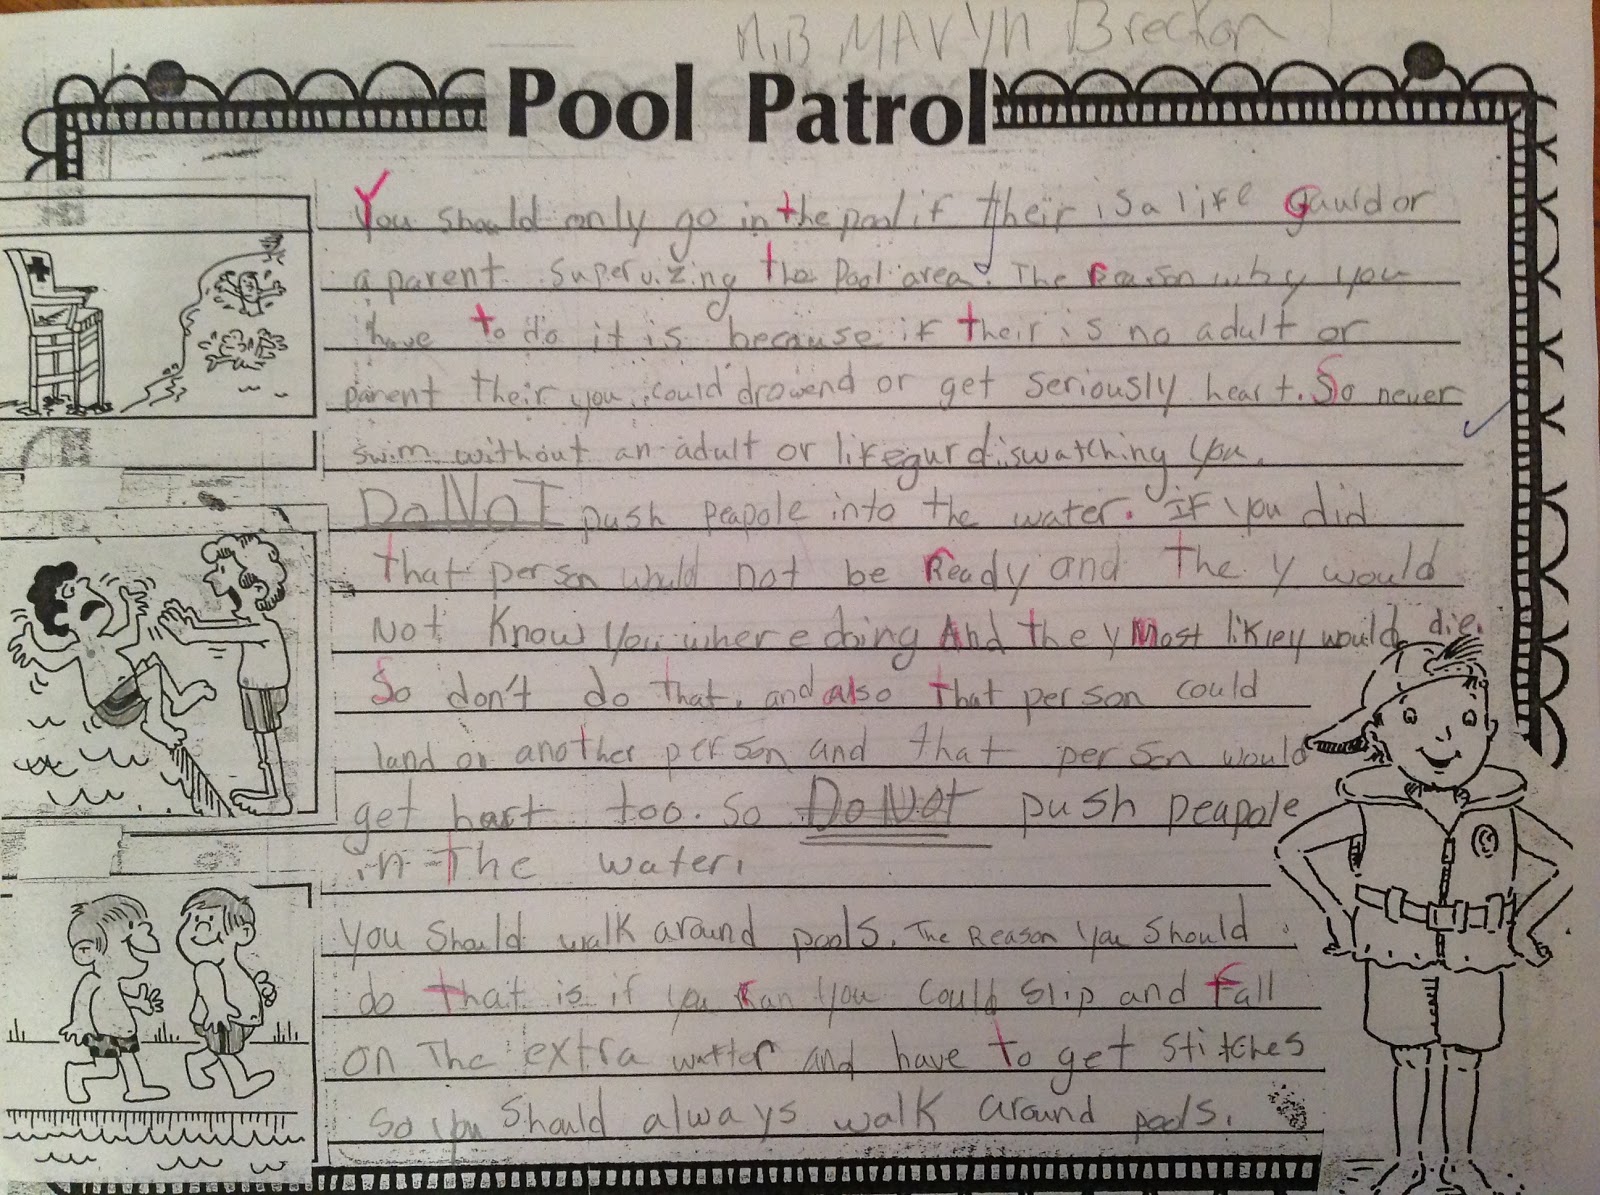 M.B MARYN Breckon
Pool Patrol
You should only go in the pool if their is a life Gaurd or
a parent supervizing the pool area. The reason why you
have to do it is because if their is no adult or
parent their you could drowend or get seriously heart. So never
swim without an adult or lifegurd is watching you.
Do NOT push peapole into the water. If you did
that person would not be Ready and the y would
Not Know you where doing And the y Most likley would die.
So don't do that, and also that person could
land on another person and that person would
get hurt too. So Do Not push peapole
in The water.
You should walk around pools. The Reason you should
do that is if you Ran you could slip and fall
on The extra watter and have to get stitches
So you should always walk around pools.